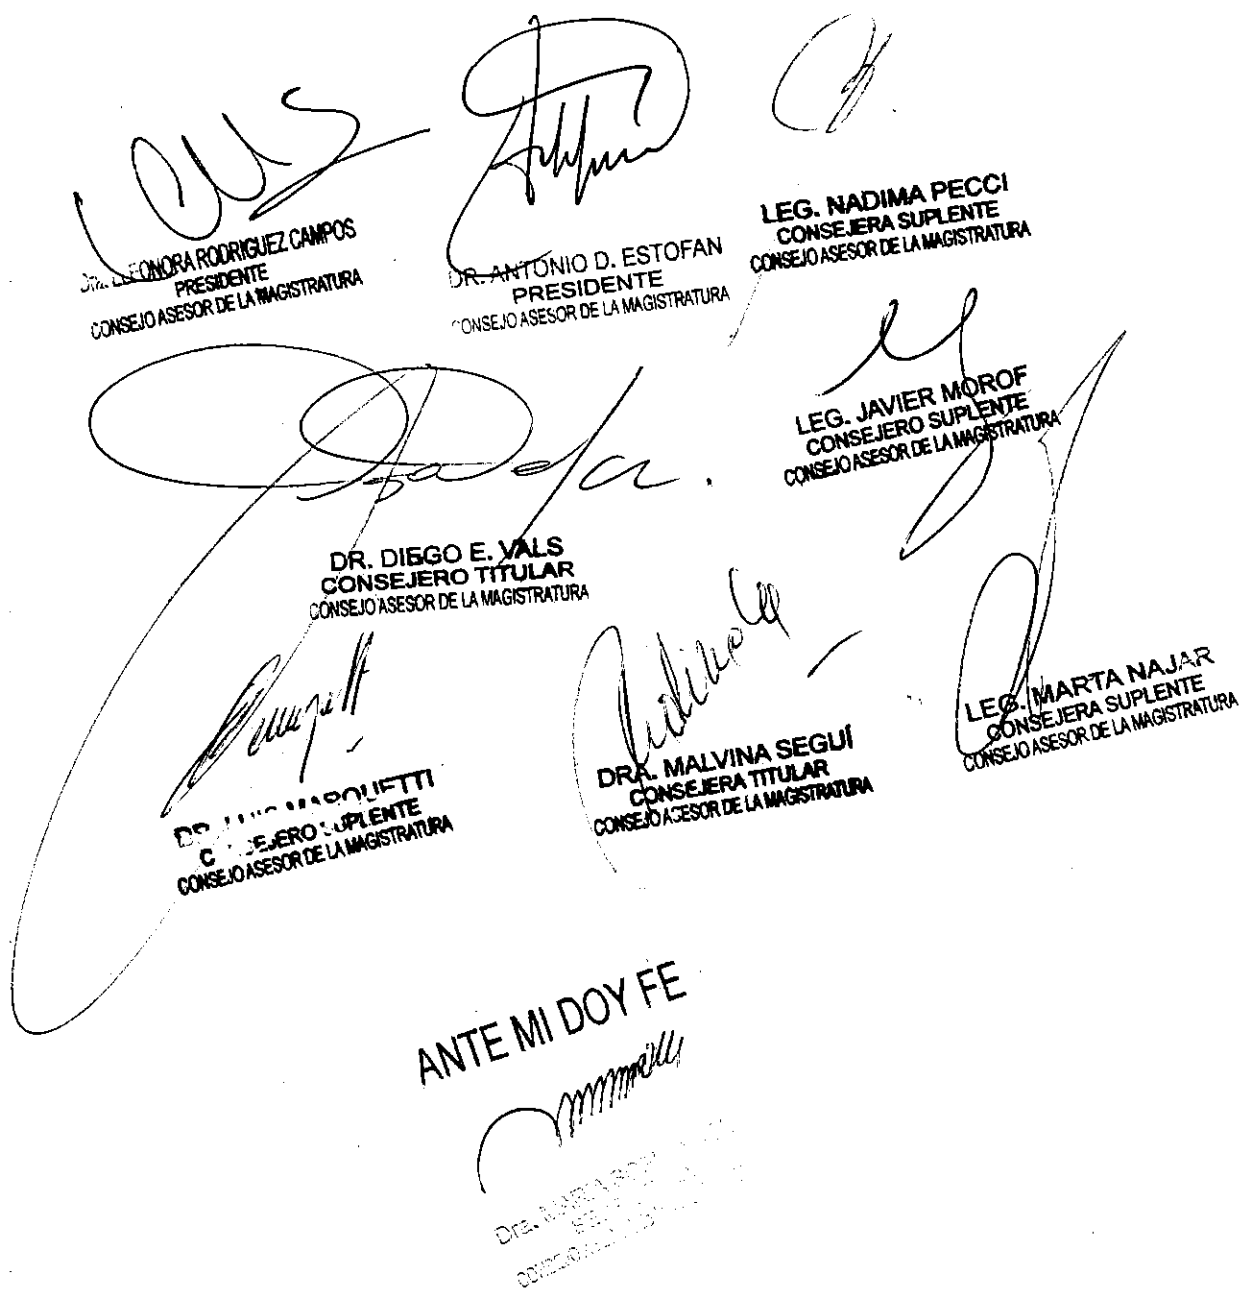 LEONORA RODRIGUEZ CAMPOS
PRESIDENTE
CONSEJO ASESOR DE LA MAGISTRATURA
DR. ANTONIO D. ESTOFAN
PRESIDENTE
CONSEJO ASESOR DE LA MAGISTRATURA
LEG. NADIMA PECCI
CONSEJERA SUPLENTE
CONSEJO ASESOR DE LA MAGISTRATURA
LEG. JAVIER MOROF
CONSEJERO SUPLENTE
CONSEJO ASESOR DE LA MAGISTRATURA
DR. DIEGO E. VALS
CONSEJERO TITULAR
CONSEJO ASESOR DE LA MAGISTRATURA
LEG. MARTA NAJAR
CONSEJERA SUPLENTE
CONSEJO ASESOR DE LA MAGISTRATURA
DRA. MALVINA SEGUÍ
CONSEJERA TITULAR
CONSEJO ASESOR DE LA MAGISTRATURA
DR. LUIS MARQUETTI
CONSEJERO SUPLENTE
CONSEJO ASESOR DE LA MAGISTRATURA
ANTE MI DOY FE
Dra.